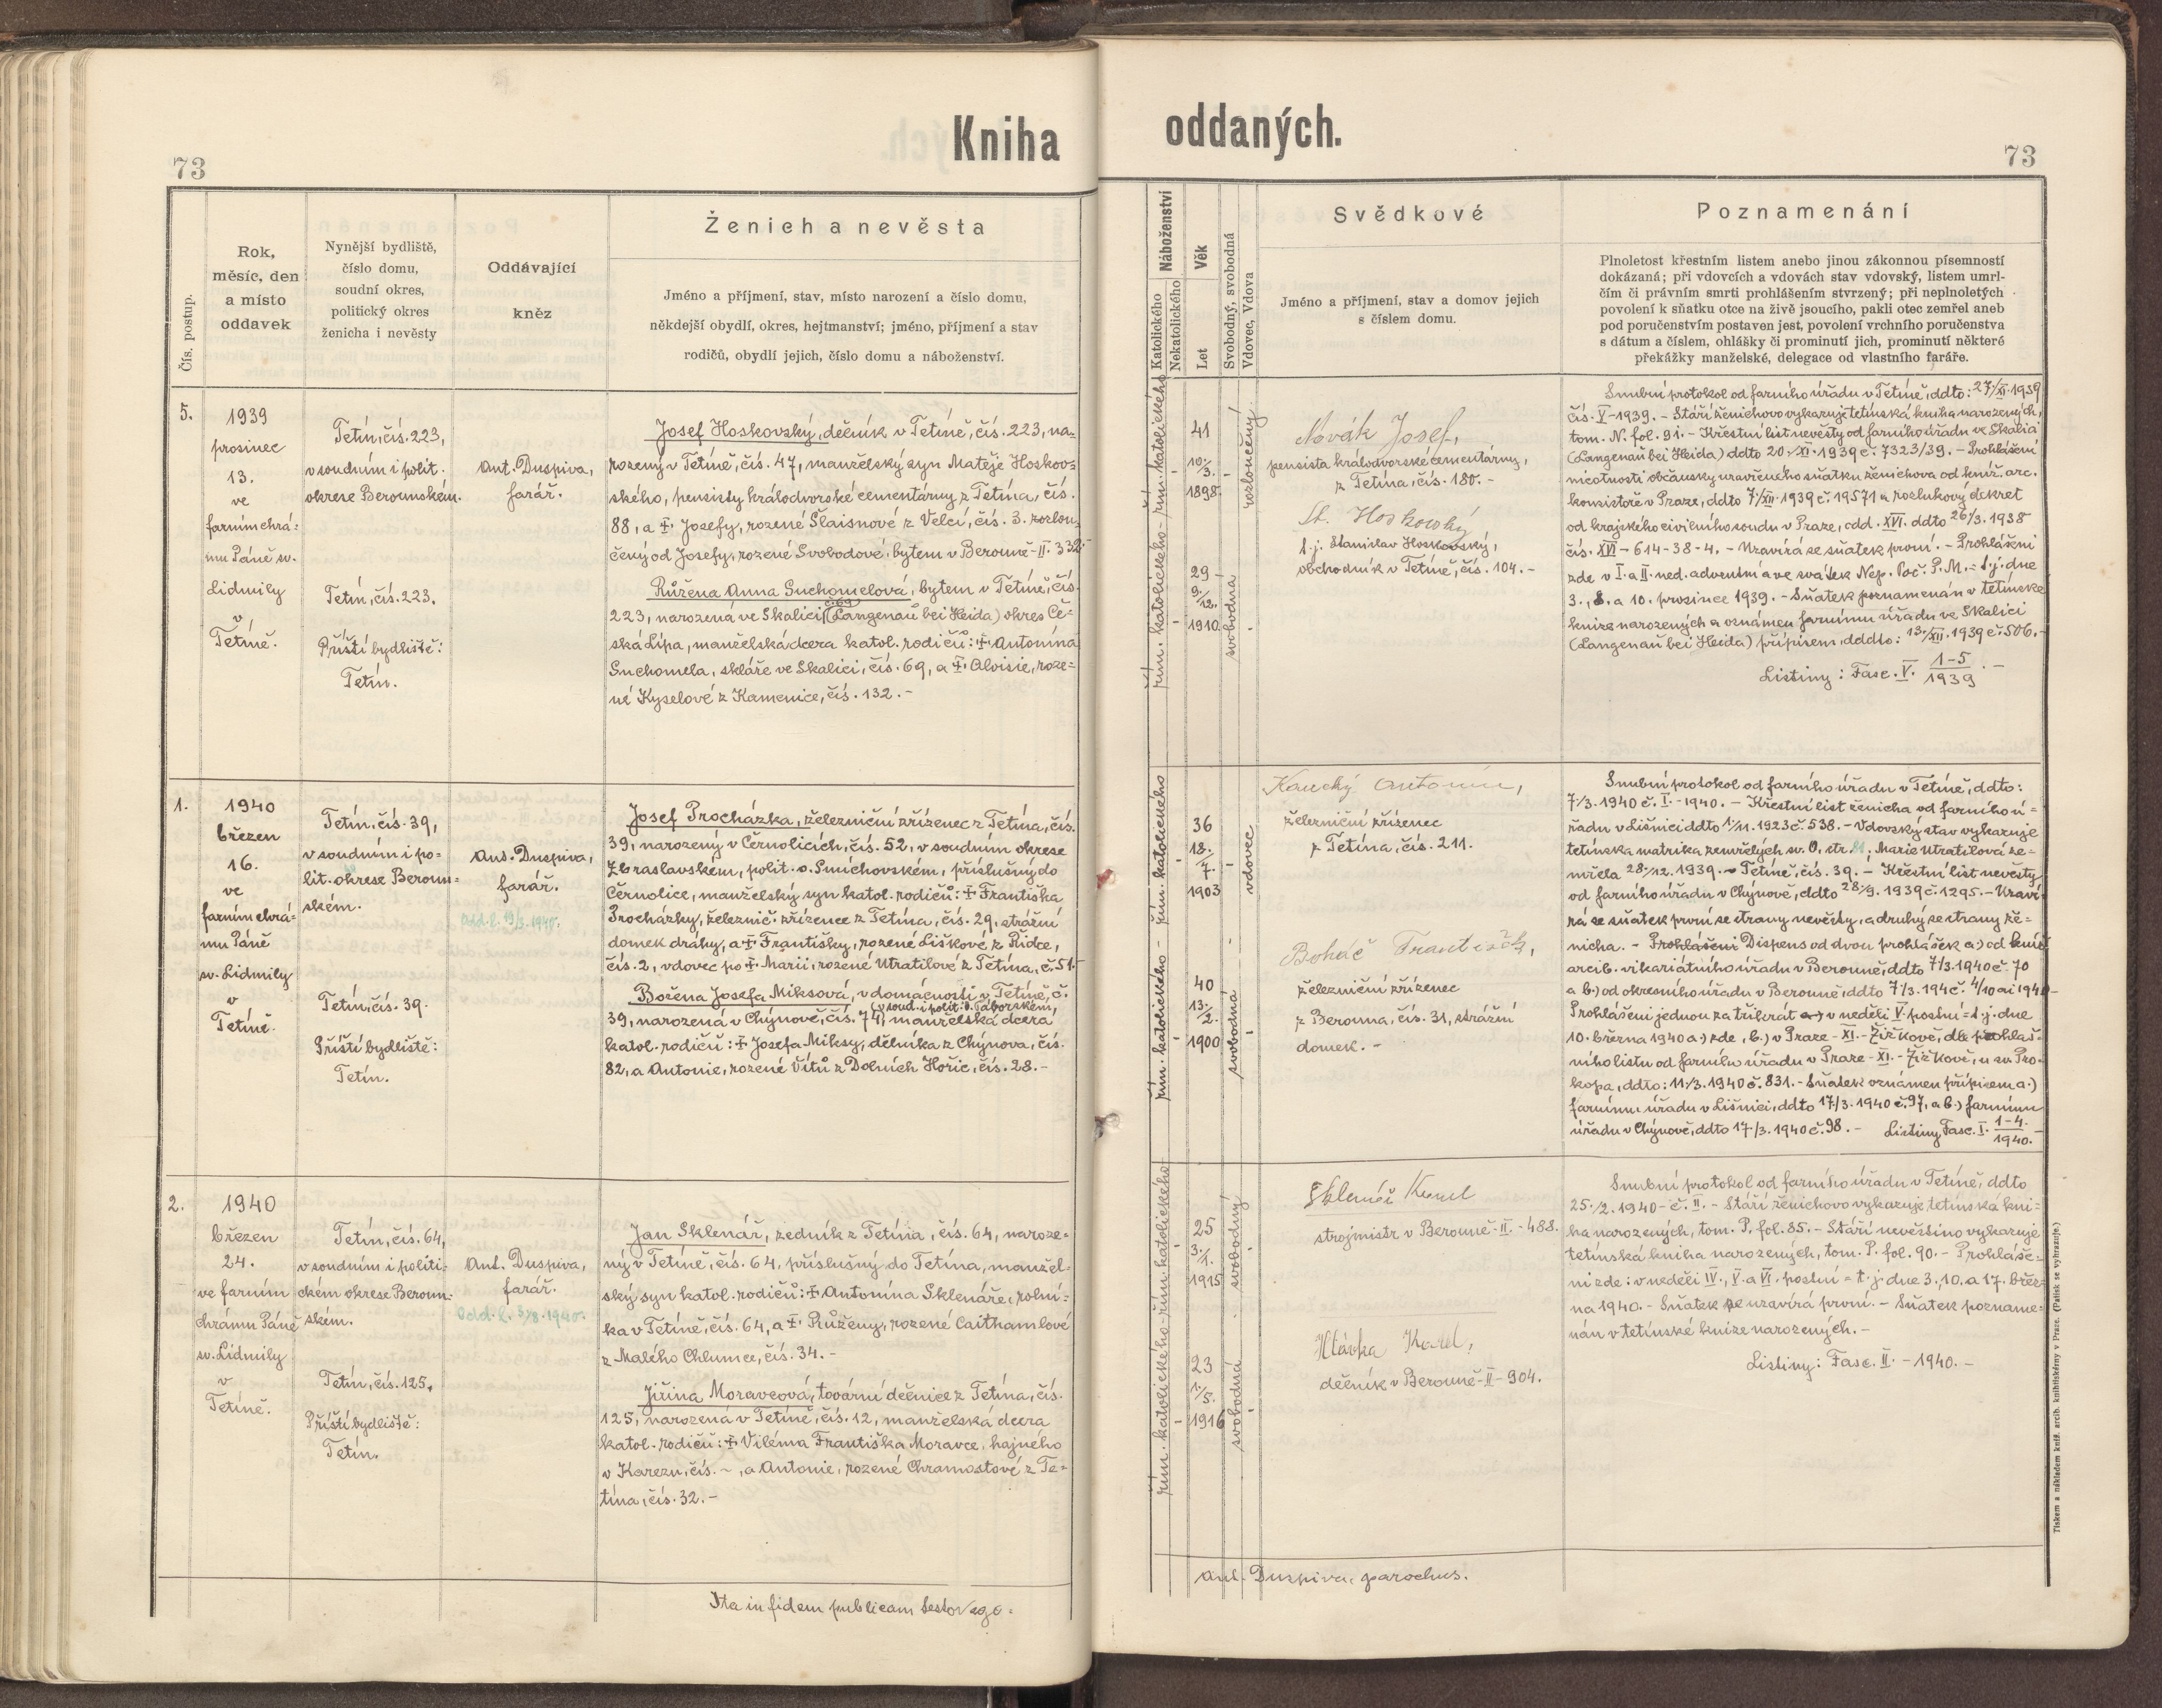 73
Kniha
oddaných.
73
Čís. postup.
Rok,
měsíc, den
a místo
oddavek
Nynější bydliště,
číslo domu,
soudní okres,
politický okres
ženicha i nevěsty
Oddávající
kněz
Ženich a nevěsta
Jméno a příjmení, stav, místo narození a číslo domu,
někdejší obydlí, okres, hejtmanství; jméno, příjmení a stav
rodičů, obydlí jejich, číslo domu a náboženství.
Náboženství
Katolického
Nekatolického
Věk
Let
Svobodný, svobodná
Vdovec, Vdova
Svědkové
Jméno a příjmení, stav a domov jejich
s číslem domu.
Poznamenání
Plnoletost křestním listem anebo jinou zákonnou písemností
dokázaná; při vdovcích a vdovách stav vdovský, listem umrl-
čím či právním smrti prohlášením stvrzený; při neplnoletých
povolení k sňatku otce na živě jsoucího, pakli otec zemřel aneb
pod poručenstvím postaven jest, povolení vrchního poručenstva
s dátum a číslem, ohlášky či prominutí jich, prominutí některé
překážky manželské, delegace od vlastního faráře.
5.
1939
prosinec
13.
ve
farním chrá-
mu Páně sv.
Lidmily
v
Tetíně.
Tetín, čís. 223,
v soudním i polit.
okrese Berounském.
Tetín, čís. 223.
Příští bydliště:
Tetín.
Ant. Duspiva,
farář.
Josef Hoskovský, dělník v Tetíně, čís. 223, na-
rozený v Tetíně, čís. 47, manželský syn Matěje Hoskov-
ského, pensisty králodvorské cementárny z Tetína, čís.
88, a † Josefy, rozené Šlaisnové z Velcí, čís. 3. rozlou-
čený od Josefy, rozené Svobodové, bytem v Berouně-II. 332.-
Růžena Anna Suchomelová, bytem v Tetíně, čís.
čís. 69
223, narozená ve Skalici (Langenau bei Heida) okres Če-
ská Lípa, manželská dcera katol. rodičů: † Antonína
Suchomela, skláře ve Skalici, čís. 69, a † Aloisie, roze-
né Kyselové z Kamenice, čís. 132.-
řím. katolického - řím. katolického
41
10./3.
1898
29
9./12.
1910
rozloučený
svobodná
Novák Josef,
pensista králodvorské cementárny,
z Tetína, čís. 180.-
St. Hoskovský
t.j. Stanislav Hoskovský,
obchodník v Tetíně, čís. 104.-
Snubní protokol od farního úřadu v Tetíně, ddto: 27/XI. 1939
čís. V-1939. - Stáří ženichovo vykazuje tetínská kniha narozených,
tom. N. fol. 91. - Křestní list nevěsty od farního úřadu ve Skalici
(Langenau bei Heida) ddto 20./XI. 1939 č. 7323/39. - Prohlášení
nicotnosti občansky uzavřeného sňatku ženichova od kníž. arc.
konsistoře v Praze, ddto 7/XII. 1939 č. 19571 a rozlukový dekret
od krajského civilního soudu v Praze, odd. XVI. ddto 26/3. 1938
čís. XVI-614-38-4. - Uzavírá se sňatek první. - Prohlášení
zde v I. a II. ned. adventní a ve svátek Nep. Poč. P. M. = t.j. dne
3., 8. a 10. prosince 1939. - Sňatek poznamenán v tetínské
knize narozených a oznámen farnímu úřadu ve Skalici
(Langenau bei Heida) přípisem, dddto: 13./XII. 1939 č. 506.-
Listiny: Fasc. V. 1-5/1939.-
1.
1940
březen
16.
ve
farním chrá-
mu Páně
sv. Lidmily
v
Tetíně.
Tetín, čís. 39,
v soudním i po-
lit. okrese Beroun-
ském.
Tetín, čís. 39.
Příští bydliště:
Tetín.
Ant. Duspiva,
farář.
Odd. l. 19/3. 1940.
Josef Procházka, železniční zřízenec z Tetína, čís.
39, narozený v Černolicích, čís. 52, v soudním okrese
Zbraslavském, polit. o. Smíchovském, příslušný do
Černolice, manželský syn katol. rodičů: † Františka
Procházky, železnič. zřízence z Tetína, čís. 29, strážní
domek dráhy, a † Františky, rozené Liškové z Řidce,
čís. 2, vdovec po † Marii, rozené Utratilové z Tetína, č. 51.-
Božena Josefa Miksová, v domácnosti v Tetíně, č.
v soud. i polit. o. Táborském,
39, narozená v Chýnově, čís. 74, manželská dcera
katol. rodičů: † Josefa Miksy, dělníka z Chýnova, čís.
82, a Antonie, rozené Vítů z Dolních Hořic, čís. 28.-
řím. katolického - řím. katolického
36
18./7.
1903
40
13./2.
1900
vdovec
svobodná
Kaucký Antonín,
železniční zřízenec
z Tetína, čís. 211.
Boháč František,
železniční zřízenec
z Berouna, čís. 31, strážní
domek.-
Snubní protokol od farního úřadu v Tetíně, ddto:
7/3. 1940 č. I.-1940. - Křestní list ženicha od farního ú-
řadu v Líšnici ddto 1/11. 1923 č. 538. - Vdovský stav vykazuje
tetínska matrika zemřelých sv. O, str. ; Marie Utratilová ze-
mřela 28./12. 1939. - Tetíně, čís. 39. - Křestní list nevěsty
od farního úřadu v Chýnově, ddto 28/9. 1939 č. 1295. - Uzaví-
rá se sňatek první se strany nevěsty, a druhý se strany že-
nicha. - Prohlášení Dispens od dvou prohlášek a.) od kníž
arcib. vikariátního úřadu v Berouně, ddto 7/3. 1940 č. 70
a b.) od okresního úřadu v Berouně, ddto 7/3. 194 č. 4/10 ai 1940-
Prohlášení jednou za třikrát a.) v neděli V. postní = t.j. dne
10. března 1940 a.) zde, b.) v Praze-XI.-Žižkově, dle prohláš-
ního listu od farního úřadu v Praze-XI.-Žižkově, u sv. Pro-
kopa, ddto: 11./3. 1940 č. 831. - Sňatek oznámen přípisem a.)
farnímu úřadu v Líšnici, ddto 17/3. 1940 č. 97, a b.) farnímu
úřadu v Chýnově, ddto 17/3. 1940 č. 98.- Listiny Fasc. I. 1-4./1940.-
2.
1940
březen
24.
ve farním
chrámu Páně
sv. Lidmily
v
Tetíně.
Tetín, čís. 64,
v soudním i politi-
ckém okrese Beroun-
ském.
Tetín, čís. 125.
Příští bydliště:
Tetín.
Ant. Duspiva,
farář.
Odd. l. 3/8. 1940.
Jan Sklenář, zedník z Tetína, čís. 64, naroze-
ný v Tetíně, čís. 64, příslušný do Tetína, manžel-
ský syn katol. rodičů: † Antonína Sklenáře, rolní-
ka v Tetíně, čís. 64, a † Růženy, rozené Caithamlové
z Malého Chlumce, čís. 34.-
Jiřina Moravcová, tovární dělnice z Tetína, čís.
125, narozená v Tetíně, čís. 12, manželská dcera
katol. rodičů: † Viléma Františka Moravce, hajného
v Karezu, čís. ~, a Antonie, rozené Chramostové z Te-
tína, čís. 32.-
řím. katolického - řím. katolického
25
3./1.
1915
23
1./5.
1916
svobodný
svobodná
Sklenář Karel
strojmistr v Berouně-II.-488.
Hlávka Karel,
dělník v Berouně-II-904.
Snubní protokol od farního úřadu v Tetíně, ddto
25./2. 1940-č. II. - Stáří ženichovo vykazuje tetínská kni-
ha narozených, tom. P. fol. 85. - Stáří nevěstino vykazuje
tetínská kniha narozených, tom. P. fol. 90. - Prohláše-
ni zde: v neděli IV., V. a VI. postní = t.j. dne 3., 10. a 17. břez-
na 1940. - Sňatek se uzavírá první. - Sňatek pozname-
nán v tetínské knize narozených.-
Listiny: Fasc. II.-1940.-
Ita in fidem publicam testor ego:
Ant. Duspiva, parochus.
Tiskem a nákladem kníž. arcib. knihtiskárny v Praze. (Patisk se vyhrazuje.)